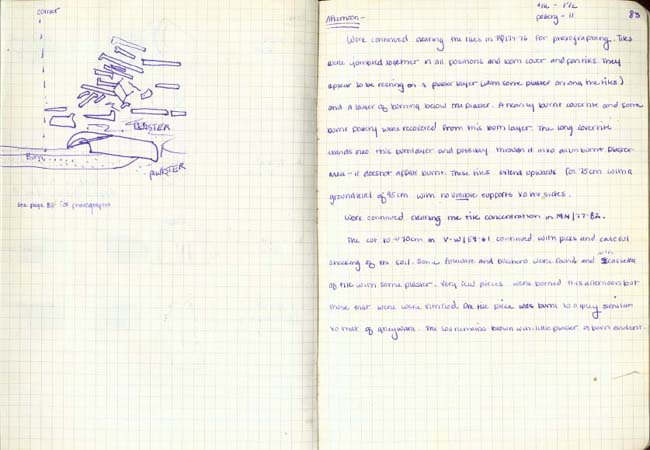 corner
PLASTER
Burn
PLASTER
see page 88 for photographs
83
tile - 1 1/2
pottery - 11
Afternoon -
Work continued clearing the tiles in 77-76 for photographing. Tiles
were jumbled together in all positions and both cover and pan tiles. They
appear to be resting on a plaster layer (with some plaster among the tiles)
and a layer of burning below the plaster. A nearly burnt covertile and some
burnt pottery were recovered from this burn layer. The long covertile
stands into this burn layer and possibly through it into an unburnt plaster
area - it does not appear burnt. These tiles extend upwards for 75cm with a
ground level of 85cm with no visible supports to the sides.
Work continued clearing the tile concentration in /77-82.
The cut to ~70cm in V-W/ continued with picks and careful
checking of the soil. Some fineware and bucchero were found and
of tile with some plaster. Very few pieces were burned this afternoon but
those that were were vitrified. One tile piece was burnt to a grey similar
to that of greyware. The soil remains brown with little plaster or burn evident.